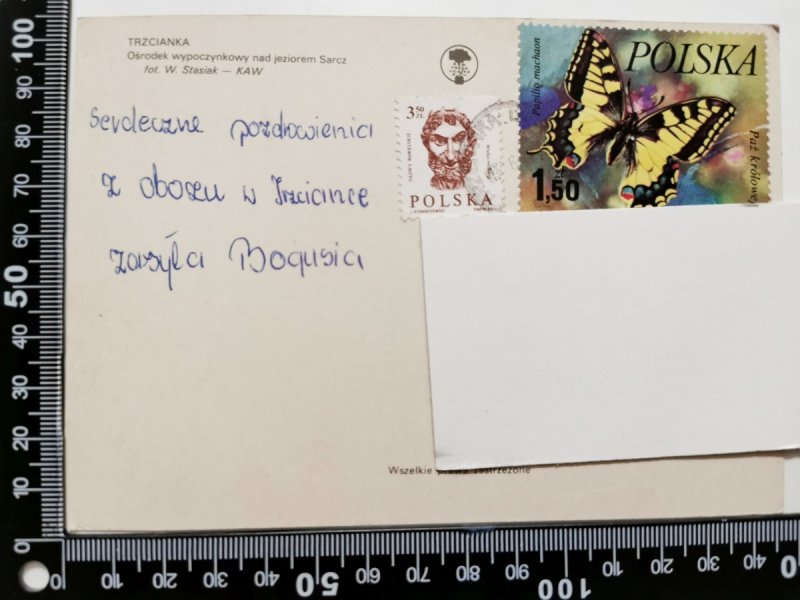 TRZCIANKA
Ośrodek wypoczynkowy nad jeziorem Sarcz
fot. W. Stasiak — KAW
Serdeczne pozdrowienia
z obozu w Trzciance
zasyła Bogusia
3,50 ZŁ
GŁOWY WAWELSKIE
POLSKA
Papilio machaon
POLSKA
Paź królowej
1,50
Wszelkie prawa zastrzeżone
0 10 20 30 40 50 60 70 80 90 100
0 10 20 30 40 50 60 70 80 90 100 10 20 30 40